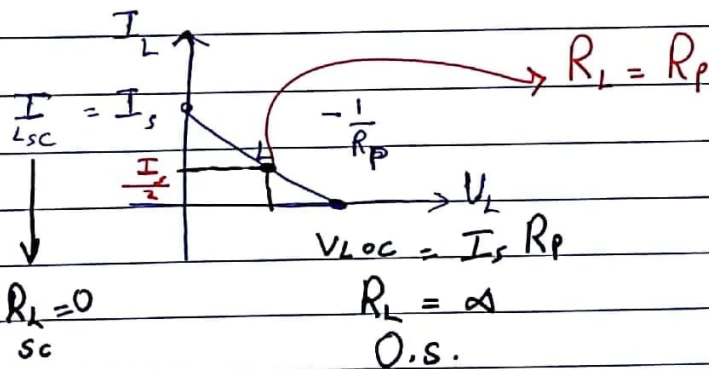 I_L
R_L = R_P
I_LSC = I_s
-1/R_P
I_s/2
V_L
V_LOC = I_s R_P
R_L = 0
R_L = ∞
SC
O.S.